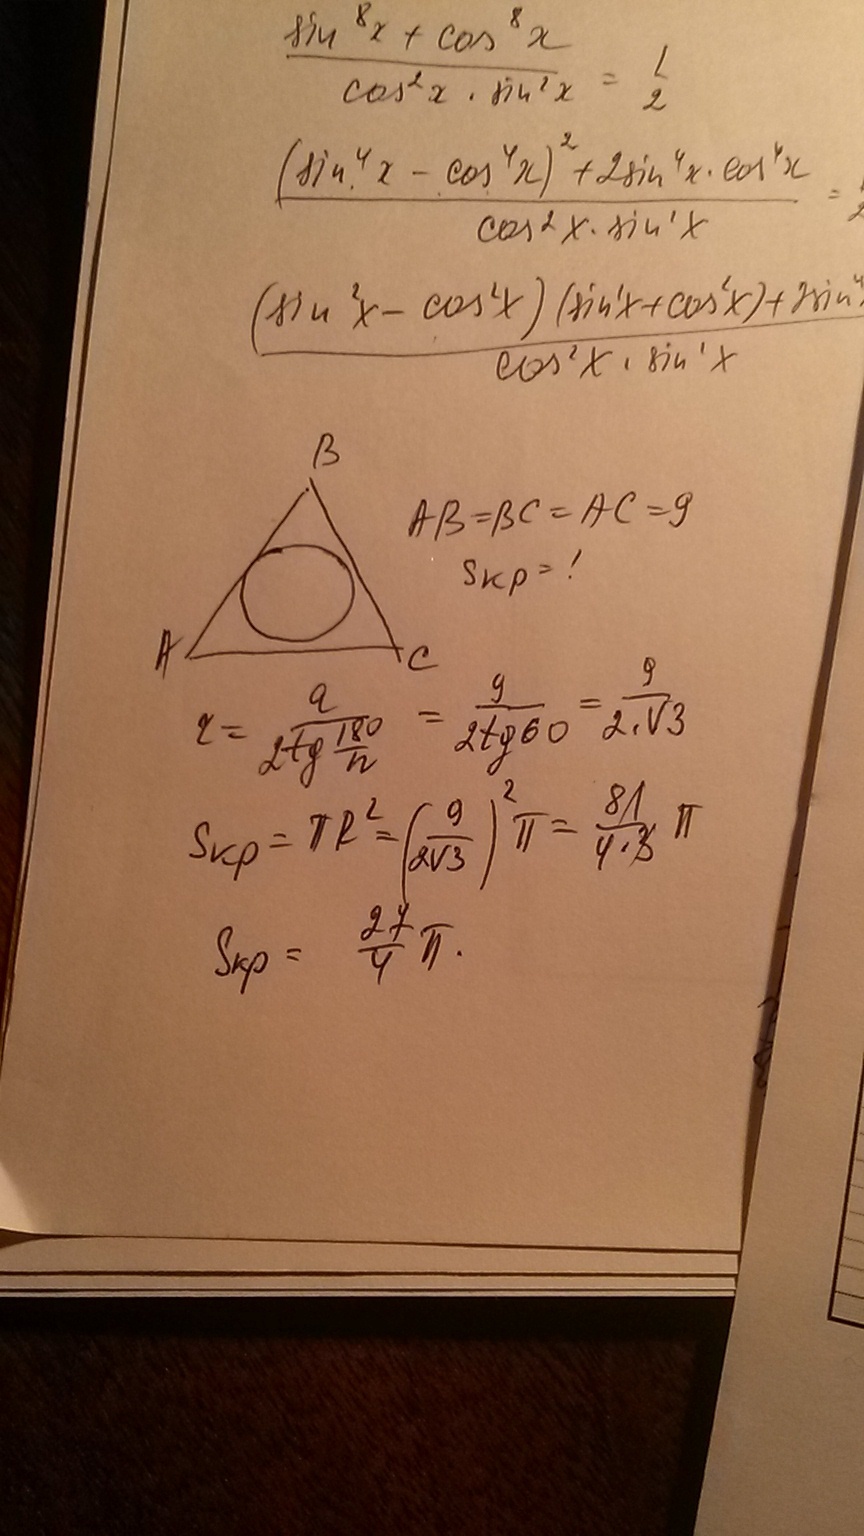 sin⁸x + cos⁸x / cos²x · sin²x = 1/2
(sin⁴x - cos⁴x)² + 2sin⁴x · cos⁴x / cos²x · sin²x =
(sin²x - cos²x)(sin²x + cos²x) + 2sin⁴x / cos²x · sin²x
B
AB = BC = AC = 9
Sкр = !
A
C
r = a / 2tg 180/n = 9 / 2tg60 = 9 / 2·√3
Sкр = πR² = (9 / 2√3)² π = 81 / 4·3 π
Sкр = 27/4 π.